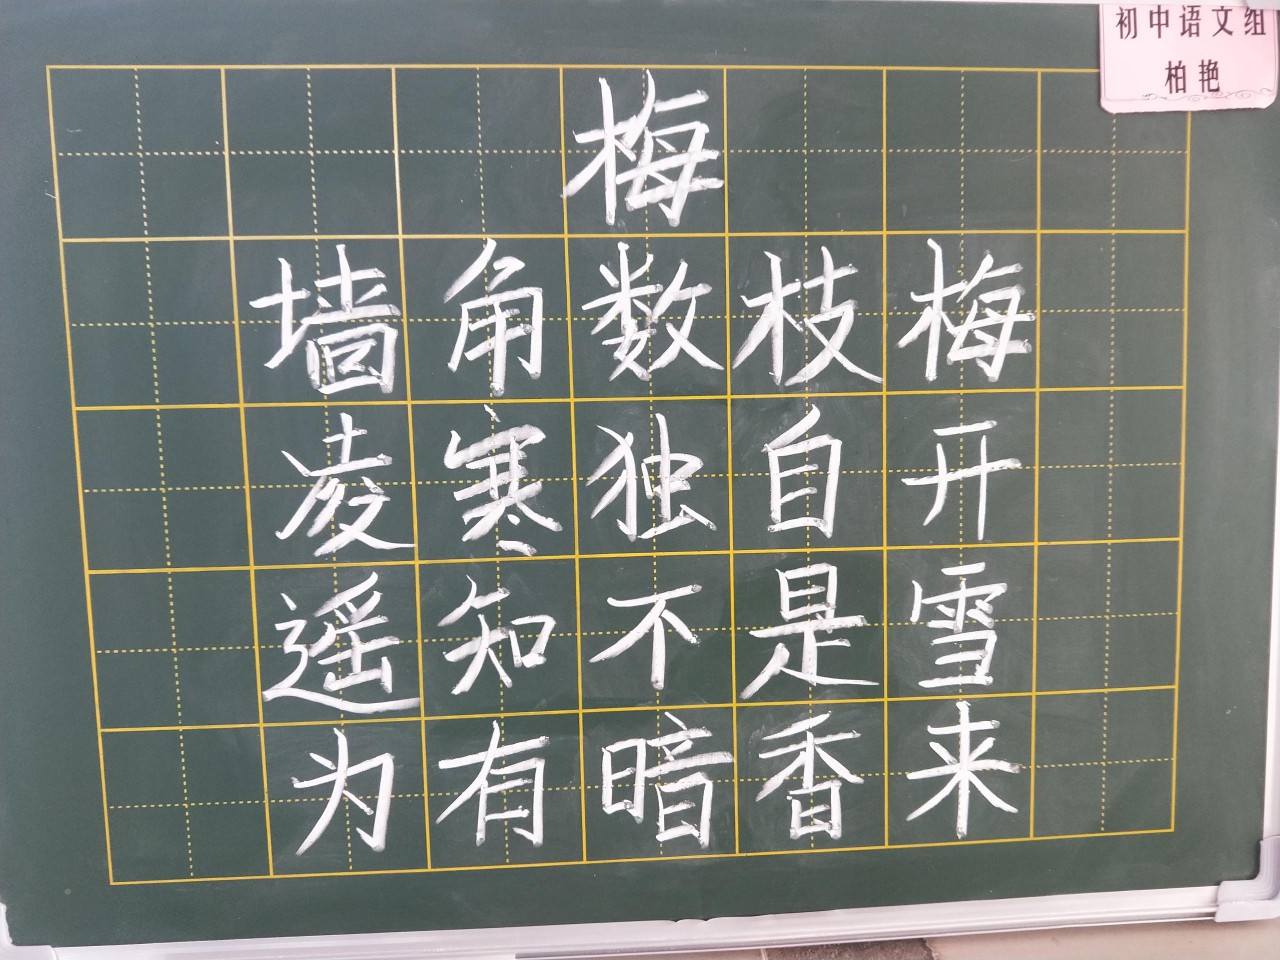 初中语文组
柏艳
梅
墙角数枝梅
凌寒独自开
遥知不是雪
为有暗香来